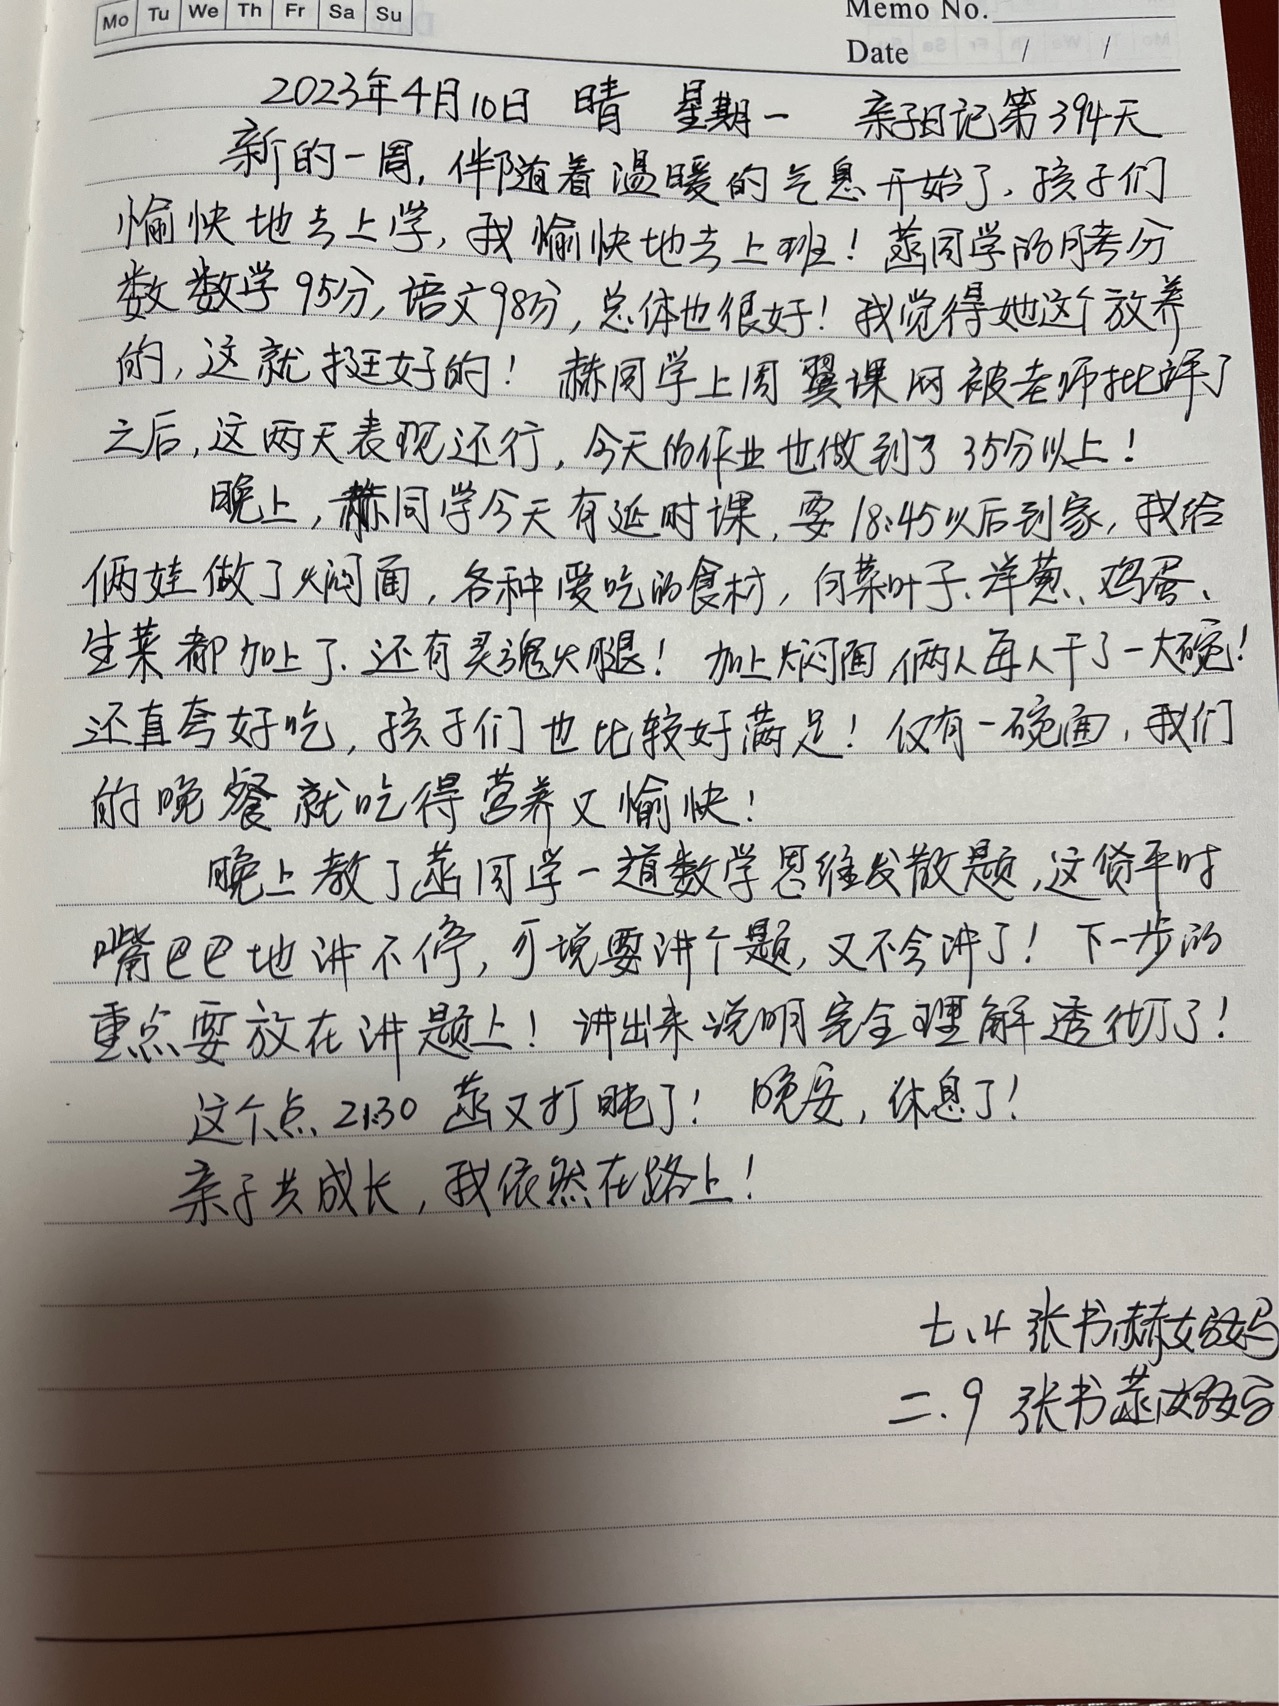 Mo Tu We Th Fr Sa Su
Memo No.
Date / /
2023年4月10日 晴 星期一 亲子日记第394天
新的一周,伴随着温暖的气息开始了,孩子们
愉快地去上学,我愉快地去上班!菡同学的月考分
数数学95分,语文98分,总体也很好!我觉得她这个放养
的,这就挺好的!赫同学上周翼课网被老师批评了
之后,这两天表现还行,今天的作业也做到了35分以上!
晚上,赫同学今天有延时课,要18:45以后到家,我给
俩娃做了焖面,各种爱吃的食材,白菜叶子、洋葱、鸡蛋、
生菜都加上了.还有灵魂火腿!加上焖面,俩人每人干了一大碗!
还直夸好吃,孩子们也比较好满足!仅有一碗面,我们
的晚餐就吃得营养又愉快!
晚上教了菡同学一道数学思维发散题,这货平时
嘴巴巴地讲不停,可说要讲个题,又不会讲了!下一步的
重点要放在讲题上!讲出来说明完全理解透彻了!
这个点21:30 菡又打盹了!晚安,休息了!
亲子共成长,我依然在路上!
七.4 张书赫妈妈
二.9 张书菡妈妈